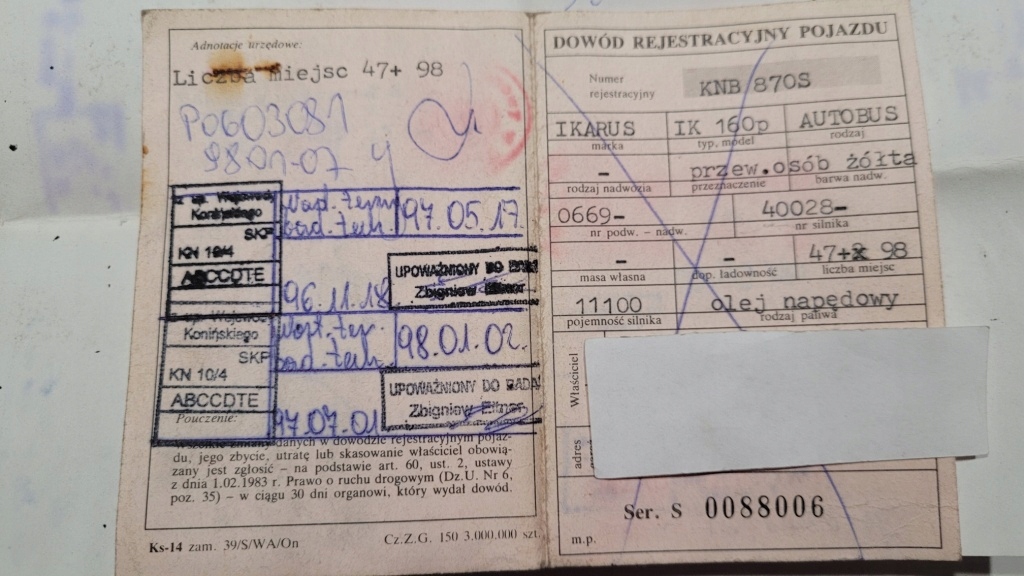 Adnotacje urzędowe:
Liczba miejsc 47+ 98
P0603081
98-01-07
Wojewody
Konińskiego
SKP
KN 10/4
ABCCDTE
97.05.17
96.11.18
UPOWAŻNIONY DO BADA
Zbigniew Eitner
Konińskiego
SKP
KN 10/4
ABCCDTE
98.01.02.
97.07.01
UPOWAŻNIONY DO BADA
Zbigniew Eitner
Pouczenie:
danych w dowodzie rejestracyjnym pojaz-
du, jego zbycie, utratę lub skasowanie właściciel obowią-
zany jest zgłosić – na podstawie art. 60, ust. 2, ustawy
z dnia 1.02.1983 r. Prawo o ruchu drogowym (Dz.U. Nr 6,
poz. 35) – w ciągu 30 dni organowi, który wydał dowód.
Ks-14 zam. 39/S/WA/On Cz.Z.G. 150 3.000.000 szt.
DOWÓD REJESTRACYJNY POJAZDU
Numer
rejestracyjny
KNB 870S
IKARUS IK 160p AUTOBUS
marka typ, model rodzaj
- przew.osób żółta
rodzaj nadwozia przeznaczenie barwa nadw.
0669- 40028-
nr podw. – nadw. nr silnika
- - 47+ 98
masa własna dop. ładowność liczba miejsc
11100 olej napędowy
pojemność silnika rodzaj paliwa
Właściciel
adres
Ser. S 0088006
m.p.